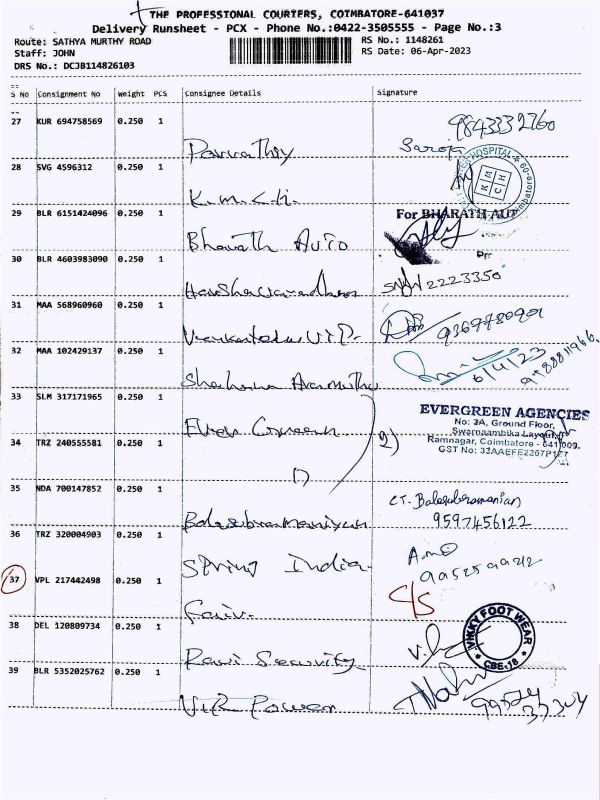 THE PROFESSIONAL COURIERS, COIMBATORE-641037
Delivery Runsheet - PCX - Phone No.:0422-3505555 - Page No.:3
Route: SATHYA MURTHY ROAD
RS No.: 1148261
Staff: JOHN
RS Date: 06-Apr-2023
DRS No.: DCJB114826103
S No Consignment No Weight PCS Consignee Details Signature
27 KUR 694758569 0.250 1
9843332760
Parvathy
Saroja
28 SVG 4596312 0.250 1
HOSPITAL
KMCH
K.M.C.H.
29 BLR 6151424096 0.250 1
For BHARATH AUT
Bharath Auto
30 BLR 4603983090 0.250 1
Harshavardhan
2223350
31 MAA 568960960 0.250 1
32 MAA 102429137 0.250 1
6/4/23
33 SLM 317171965 0.250 1
EVERGREEN AGENCIES
No: 3A, Ground Floor,
Swarnaambika Layout,
Ramnagar, Coimbatore - 641 009.
GST No: 33AAEFE2267P1Z7
Ever Green
2)
34 TRZ 240555581 0.250 1
35 NDA 700147852 0.250 1
CT. Balasubramanian
9597456122
Balasubramaniyan
36 TRZ 320004903 0.250 1
Spring India
37 VPL 217442498 0.250 1
C/S
38 DEL 120809734 0.250 1
VIKKY FOOT WEAR
CBE-18
Ravi Security
39 BLR 5352025762 0.250 1
Power